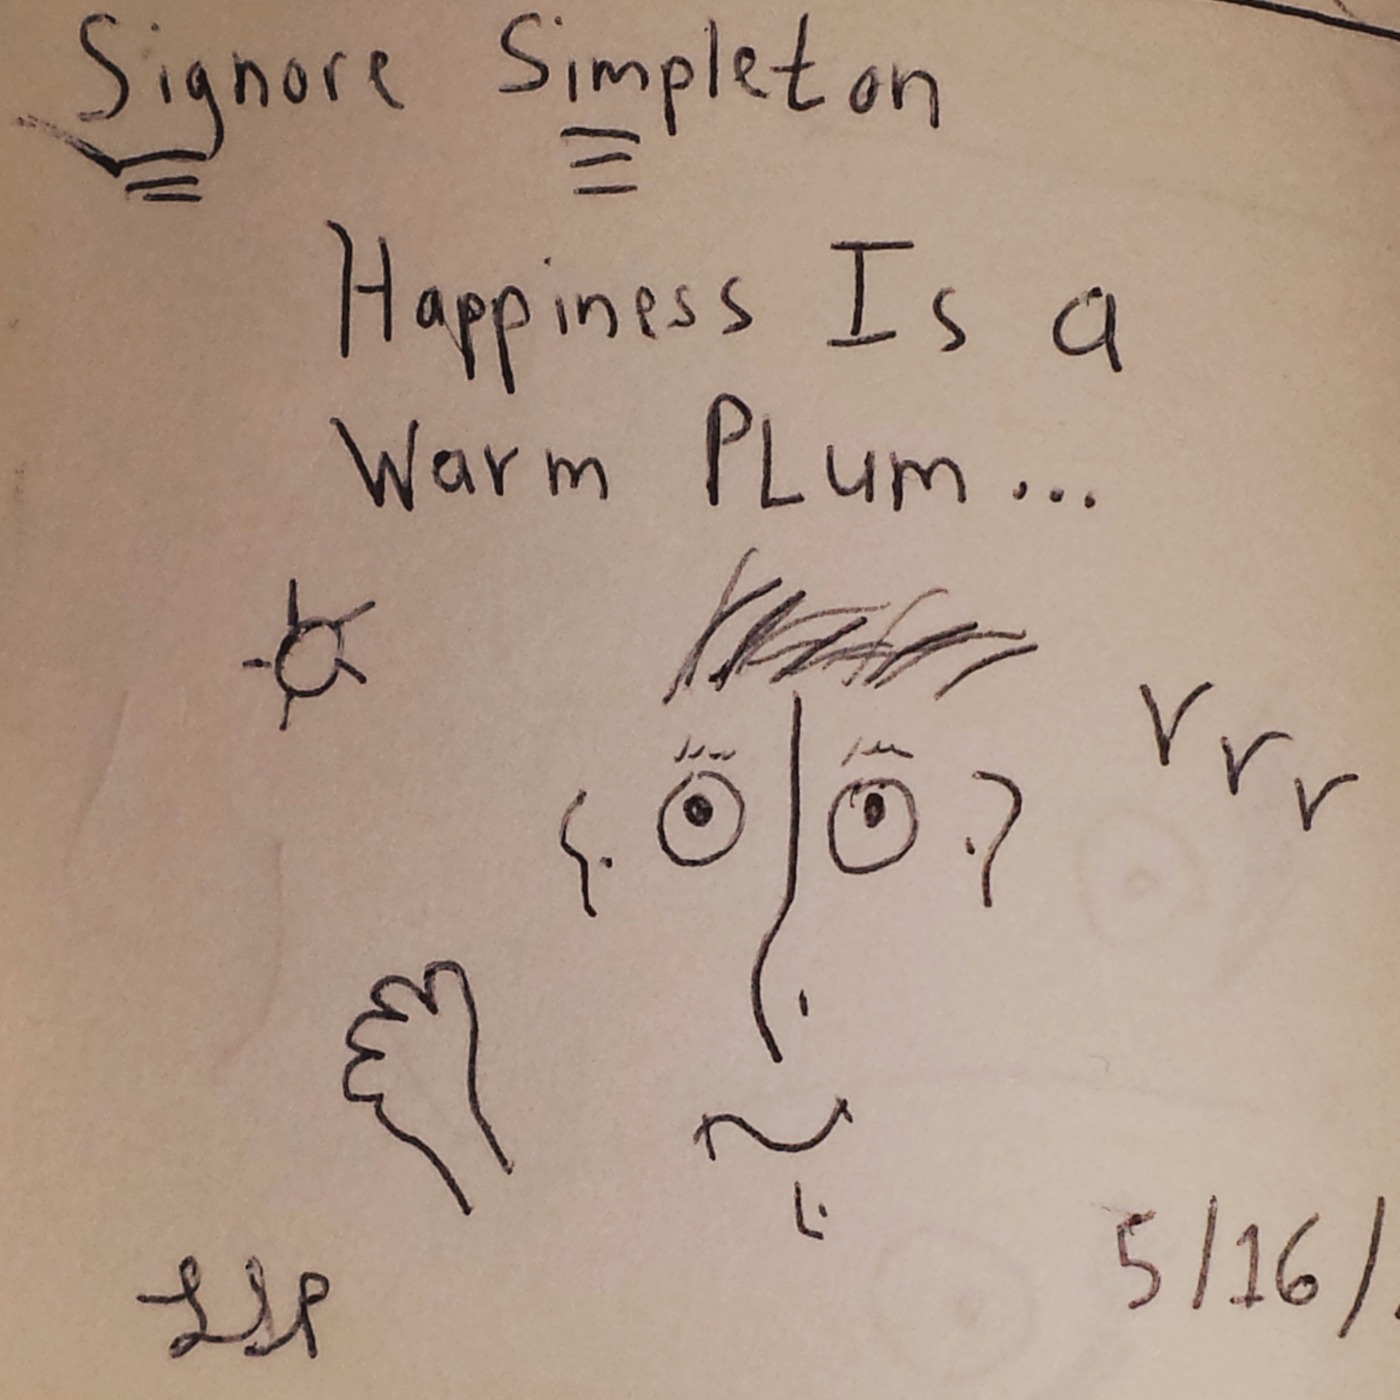 Signore Simpleton
Happiness Is a
Warm PLum...
5/16/